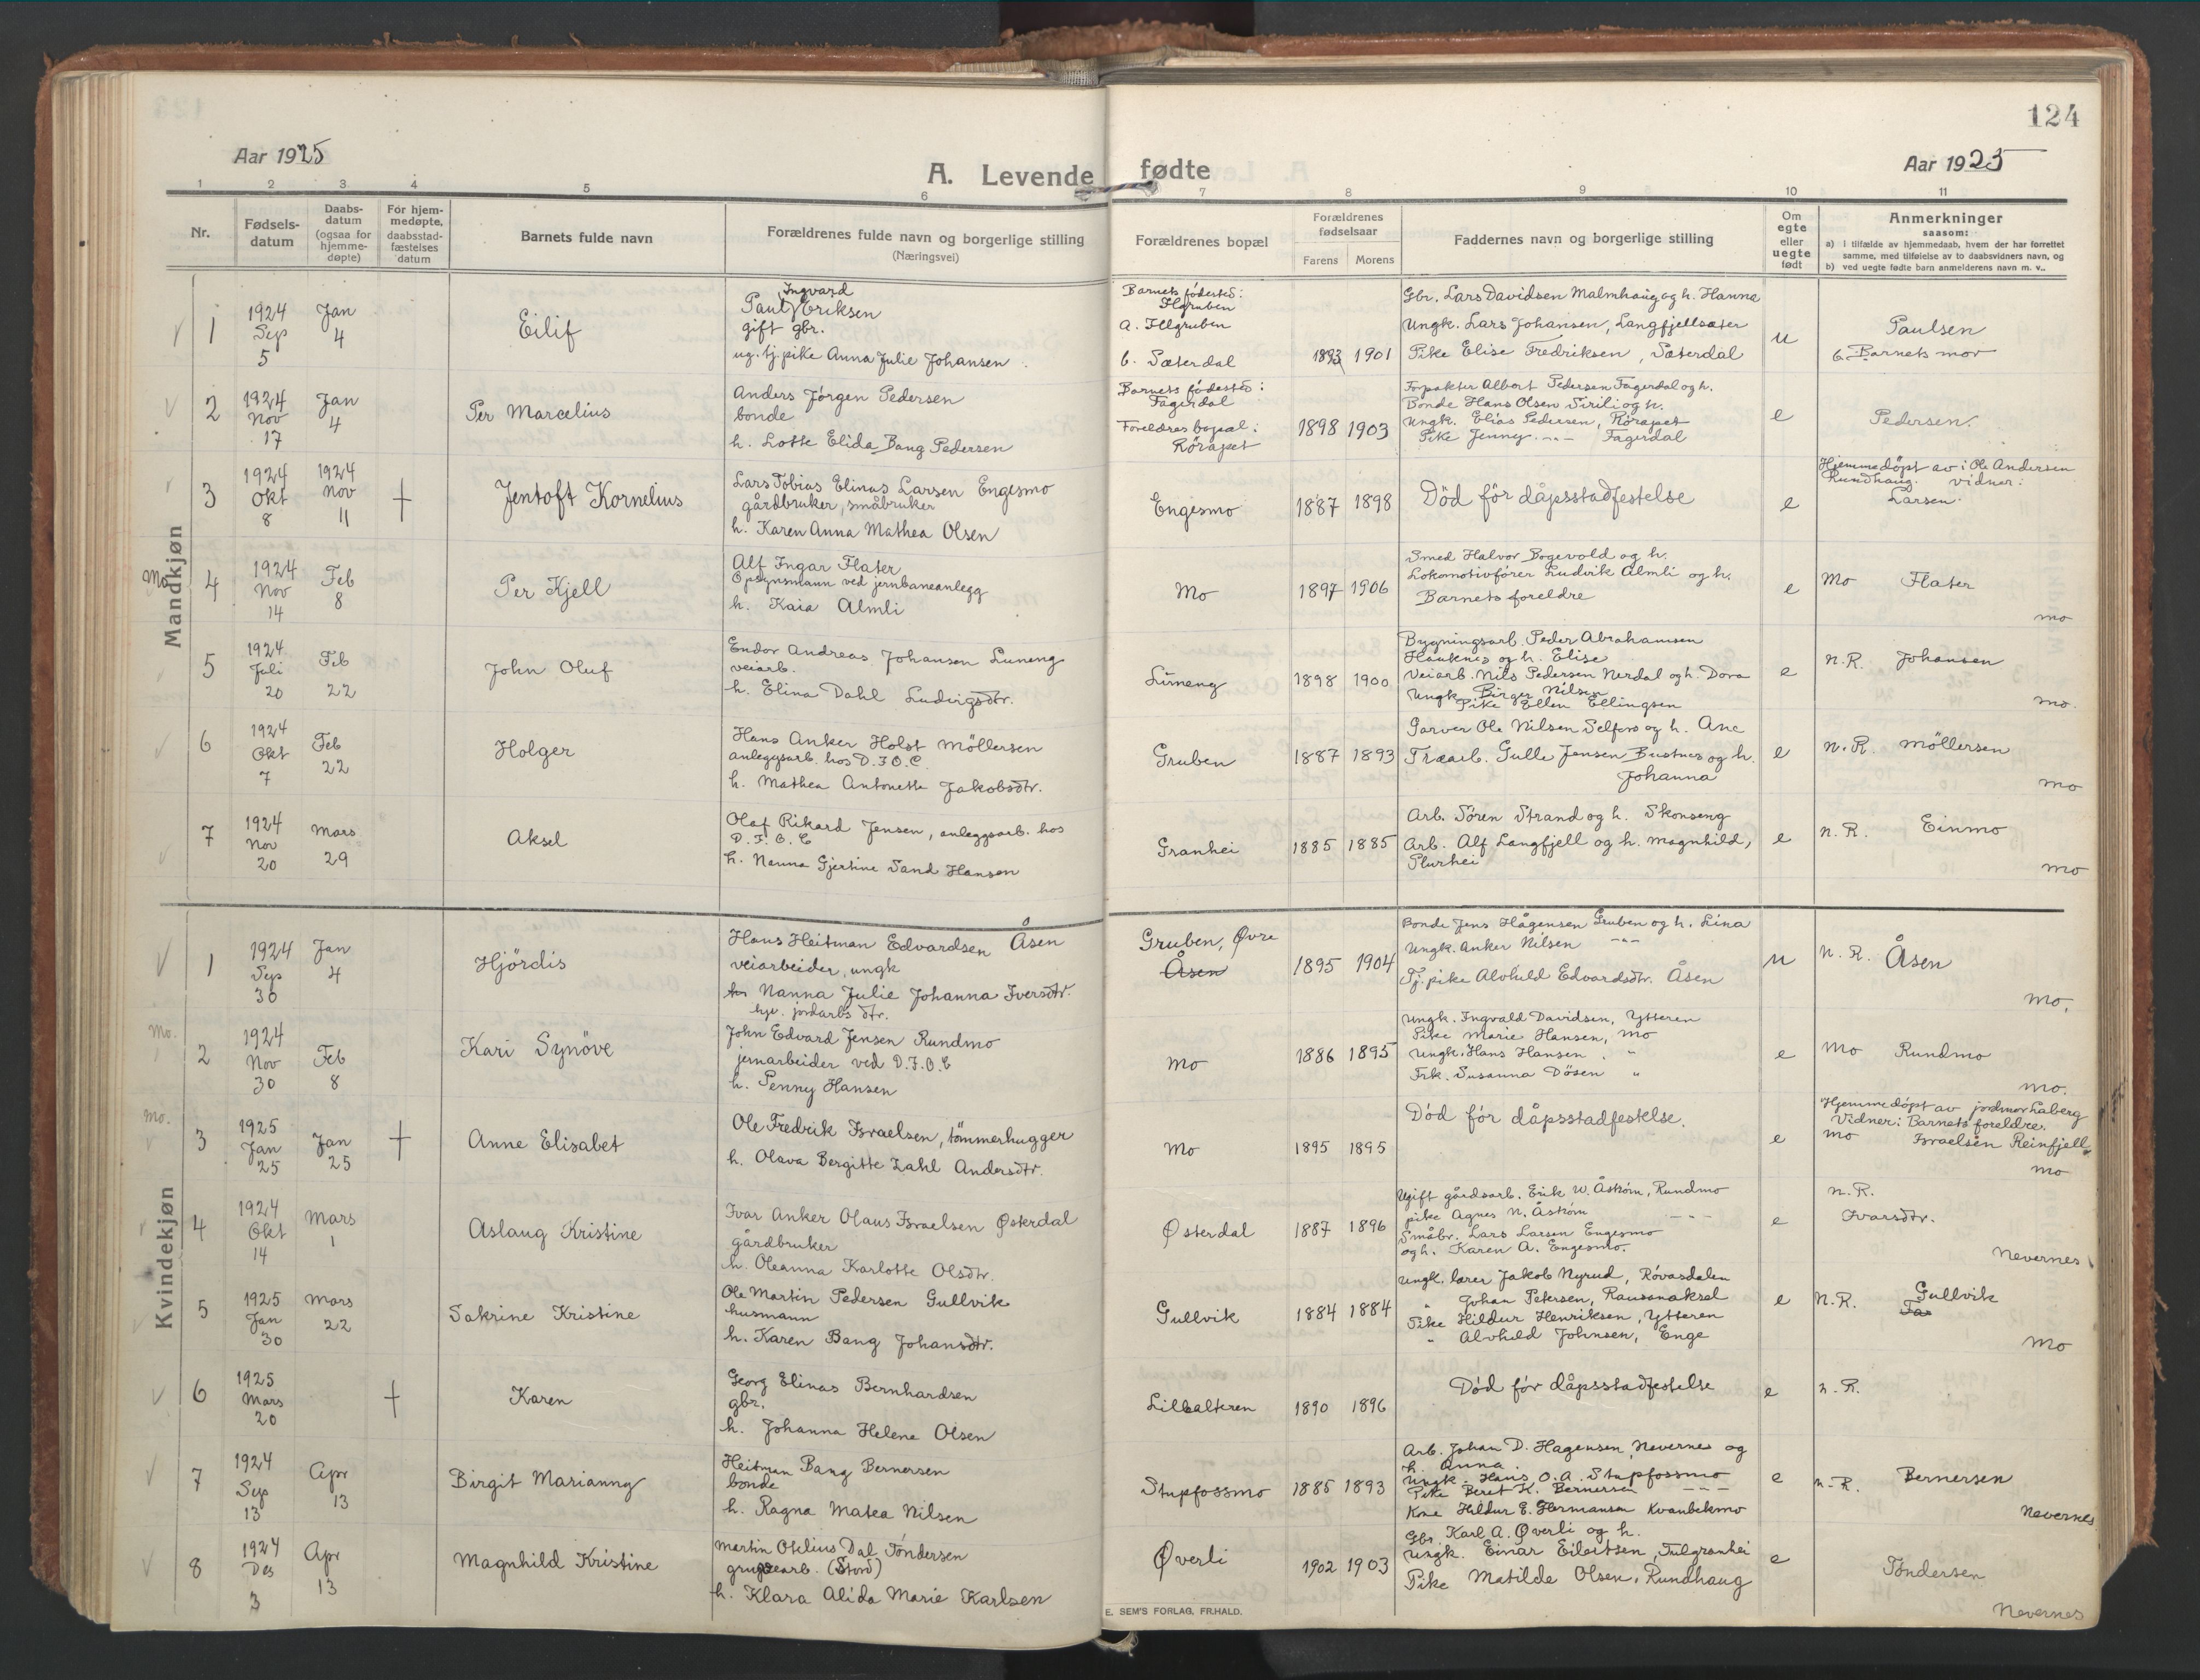 124
Aar 1925
A. Levende fødte
Aar 1925
1 2 3 4 5 6 7 8 9 10 11
Nr.
Fødsels-
datum
Daabs-
datum
(ogsaa for
hjemme-
døpte)
For hjem-
medøpte,
daabsstad-
fæstelses
datum
Barnets fulde navn
Forældrenes fulde navn og borgerlige stilling
(Næringsvei)
Forældrenes bopæl
Forældrenes
fødselsaar
Farens Morens
Faddernes navn og borgerlige stilling
Om
egte
eller
uegte
født
Anmerkninger
saasom:
a) i tilfælde av hjemmedaab, hvem der har forrettet
samme, med tilføielse av to daabsvidners navn, og
b) ved uegte fødte barn anmelderens navn m. v..
Mandkjøn
1
1924
Sep
5
Jan
4
Eilif
Ingvard
Paul Eriksen
gift gbr.
ug. tj. pike Anna Julie Johansen
Barnets fødested:
Ilgruben
a. Ilgruben
b. Sæterdal
1893 1901
Gbr. Lars Davidsen Malmhaug og h. Hanna
Ungk. Lars Johansen, Langfjellsæter
Pike Elise Fredriksen, Sæterdal
u
Paulsen
b. Barnets mor
2
1924
Nov
17
Jan
4
Per Marcelius
Anders Jörgen Pedersen
bonde
h. Lotte Elida Bang Pedersen
Barnets fødested:
Fagerdal
Foreldres bopæl:
Rörapet
1898 1903
Forpakter Albert Pedersen Fagerdal og h.
Bonde Hans Olsen Sirili og h.
Ungk. Elias Pedersen, Rörapet
Pike Jenny -"- Fagerdal
e
Pedersen.
3
1924
Okt
8
1924
Nov
11
†
Jentoft Kornelius
Lars Tobias Elinus Larsen Engesmo
gårdbruker, småbruker
h. Karen Anna Mathea Olsen
Engesmo
1887 1898
Död för dåpsstadfestelse
e
Hjemmedöpt av: Ole Andersen
Rundhaug. vidner:
Larsen
Mo
4
1924
Nov
14
Feb
8
Per Kjell
Alf Ingar Flater
Opsynsmann ved jernbaneanlegg
h. Kaia Almli
Mo
1897 1906
Smed Halvor Bogevold og h.
Lokomotivförer Ludvik Almli og h.
Barnets foreldre
e
Mo Flater
mo
5
1924
Juli
20
Feb
22
John Oluf
Endor Andreas Johansen Luneng
veiarb.
h. Elina Dahl Ludvigsdtr.
Luneng
1898 1900
Bygningsarb. Peder Abrahamsen
Hauknes og h. Elise
Veiarb. Nils Pedersen Nerdal og h. Dora
Ungk. Birger Nilsen
Pike Ellen Ellingsen
e
n.R. Johansen
mo.
6
1924
Okt
7
Feb
22
Holger
Hans Anker Holst Möllersen
anleggsarb. hos D.I.O.C.
h. Mathea Antonette Jakobsdtr.
Gruben
1887 1893
Garver Ole Nilsen Selfors og h. Ane
Træarb. Gulle Jensen Bustnes og h.
Johanna
e
n.R. Möllersen
mo
7
1924
Nov
20
Mars
29
Aksel
Olaf Rikard Jensen, anleggsarb. hos
D.I.O.C
h. Nanna Gjertine Sand Hansen
Granhei
1885 1885
Arb. Sören Strand og h. Skonseng
Arb. Alf Langfjell og h. Magnhild,
Plurhei
e
n.R. Einmo
mo
Kvindekjøn
1
1924
Sep
30
Jan
4
Hjördis
Hans Heitman Edvardsen Åsen
veiarbeider, ungk
Nanna Julie Johanna Iversdtr.
hjv. jordarbs dtr.
Gruben, Øvre
Åsen
1895 1904
Bonde Jens Hågensen Gruben og h. Lina
Ungk. Anker Nilsen -"-
Tj. pike Alvhild Edvardsdtr. Åsen
u
n.R. Åsen
mo,
Mo.
2
1924
Nov
30
Feb
8
Kari Synöve
John Edvard Jensen Rundmo
jernarbeider ved D.I.O.C
h. Penny Hansen
Mo
1886 1895
Ungk. Ingvald Davidsen, Ytteren
Pike Marie Hansen, Mo
Ungk. Hans Hansen "
Frk. Susanna Dösen "
e
Mo Rundmo
mo.
Mo.
3
1925
Jan
25
Jan
25
†
Anne Elisabet
Ole Fredrik Israelsen, tömmerhugger
h. Olava Bergitte Zahl Andersdtr.
Mo
1895 1895
Död för dåpsstadfestelse.
e
Hjemmedöpt av jordmor Laberg
Vidner: Barnets foreldre.
mo Israelsen Reinfjell
mo
4
1924
Okt
14
Mars
1
Aslaug Kristine
Ivar Anker Olaus Israelsen Østerdal
gårdbruker
h. Oleanna Karlotte Olsdtr.
Østerdal
1887 1896
Ugift gårdsarb. Erik W. Åström, Rundmo
pike Agnes N. Åström -"-
Småbr. Lars Larsen Engesmo
og h. Karen A. Engesmo.
e
n.R.
Ivarsdtr.
Nevernes
5
1925
Jan
30
Mars
22
Sakrine Kristine
Ole Martin Pedersen Gullvik
husmann
h. Karen Bang Johansdtr.
Gullvik
1884 1884
Ungk. lærer Jakob Nyrud, Rövasdalen
" Johan Petersen, Rausanaksel
Pike Hildur Henriksen, Ytteren
" Alvhild Johnsen, Enge
e
N.R. Gullvik
mo
6
1925
Mars
20
†
Karen
Georg Elinas Bernhardsen
gbr.
h. Johanna Helene Olsen
Lillealteren
1890 1896
Död för dåpsstadfestelse
e
n.R.
7
1924
Sep
13
Apr
13
Birgit Marianny
Heitman Bang Bernersen
bonde
h. Ragna Matea Nilsen
Stupfossmo
1885 1893
Arb. Johan D. Hagensen Nevernes og
h. Anna.
Ungk. Hans O.A. Stupfossmo
Pike Beret K. Bernersen -"-
Kone Hildur E. Hermansen Kvanbekmo
e
n.R. Bernersen
Nevernes
8
1924
Des
3
Apr
13
Magnhild Kristine
Martin Oklius Dal Töndersen
grubearb. (Stord)
h. Klara Alida Marie Karlsen
Øverli
1902 1903
Gbr. Karl A. Øverli og h.
Ungk. Einar Eilertsen,
Pike Matilde Olsen, Rundhaug
e
Töndersen
Nevernes
E. SEM'S FORLAG, FR.HALD.